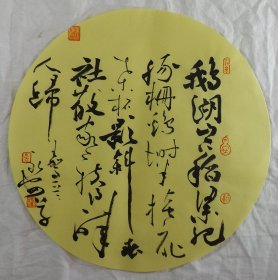 鵝湖山下稻粱肥
豚柵鷄塒半掩扉
桑柘影斜春
社散家家扶得醉
人歸